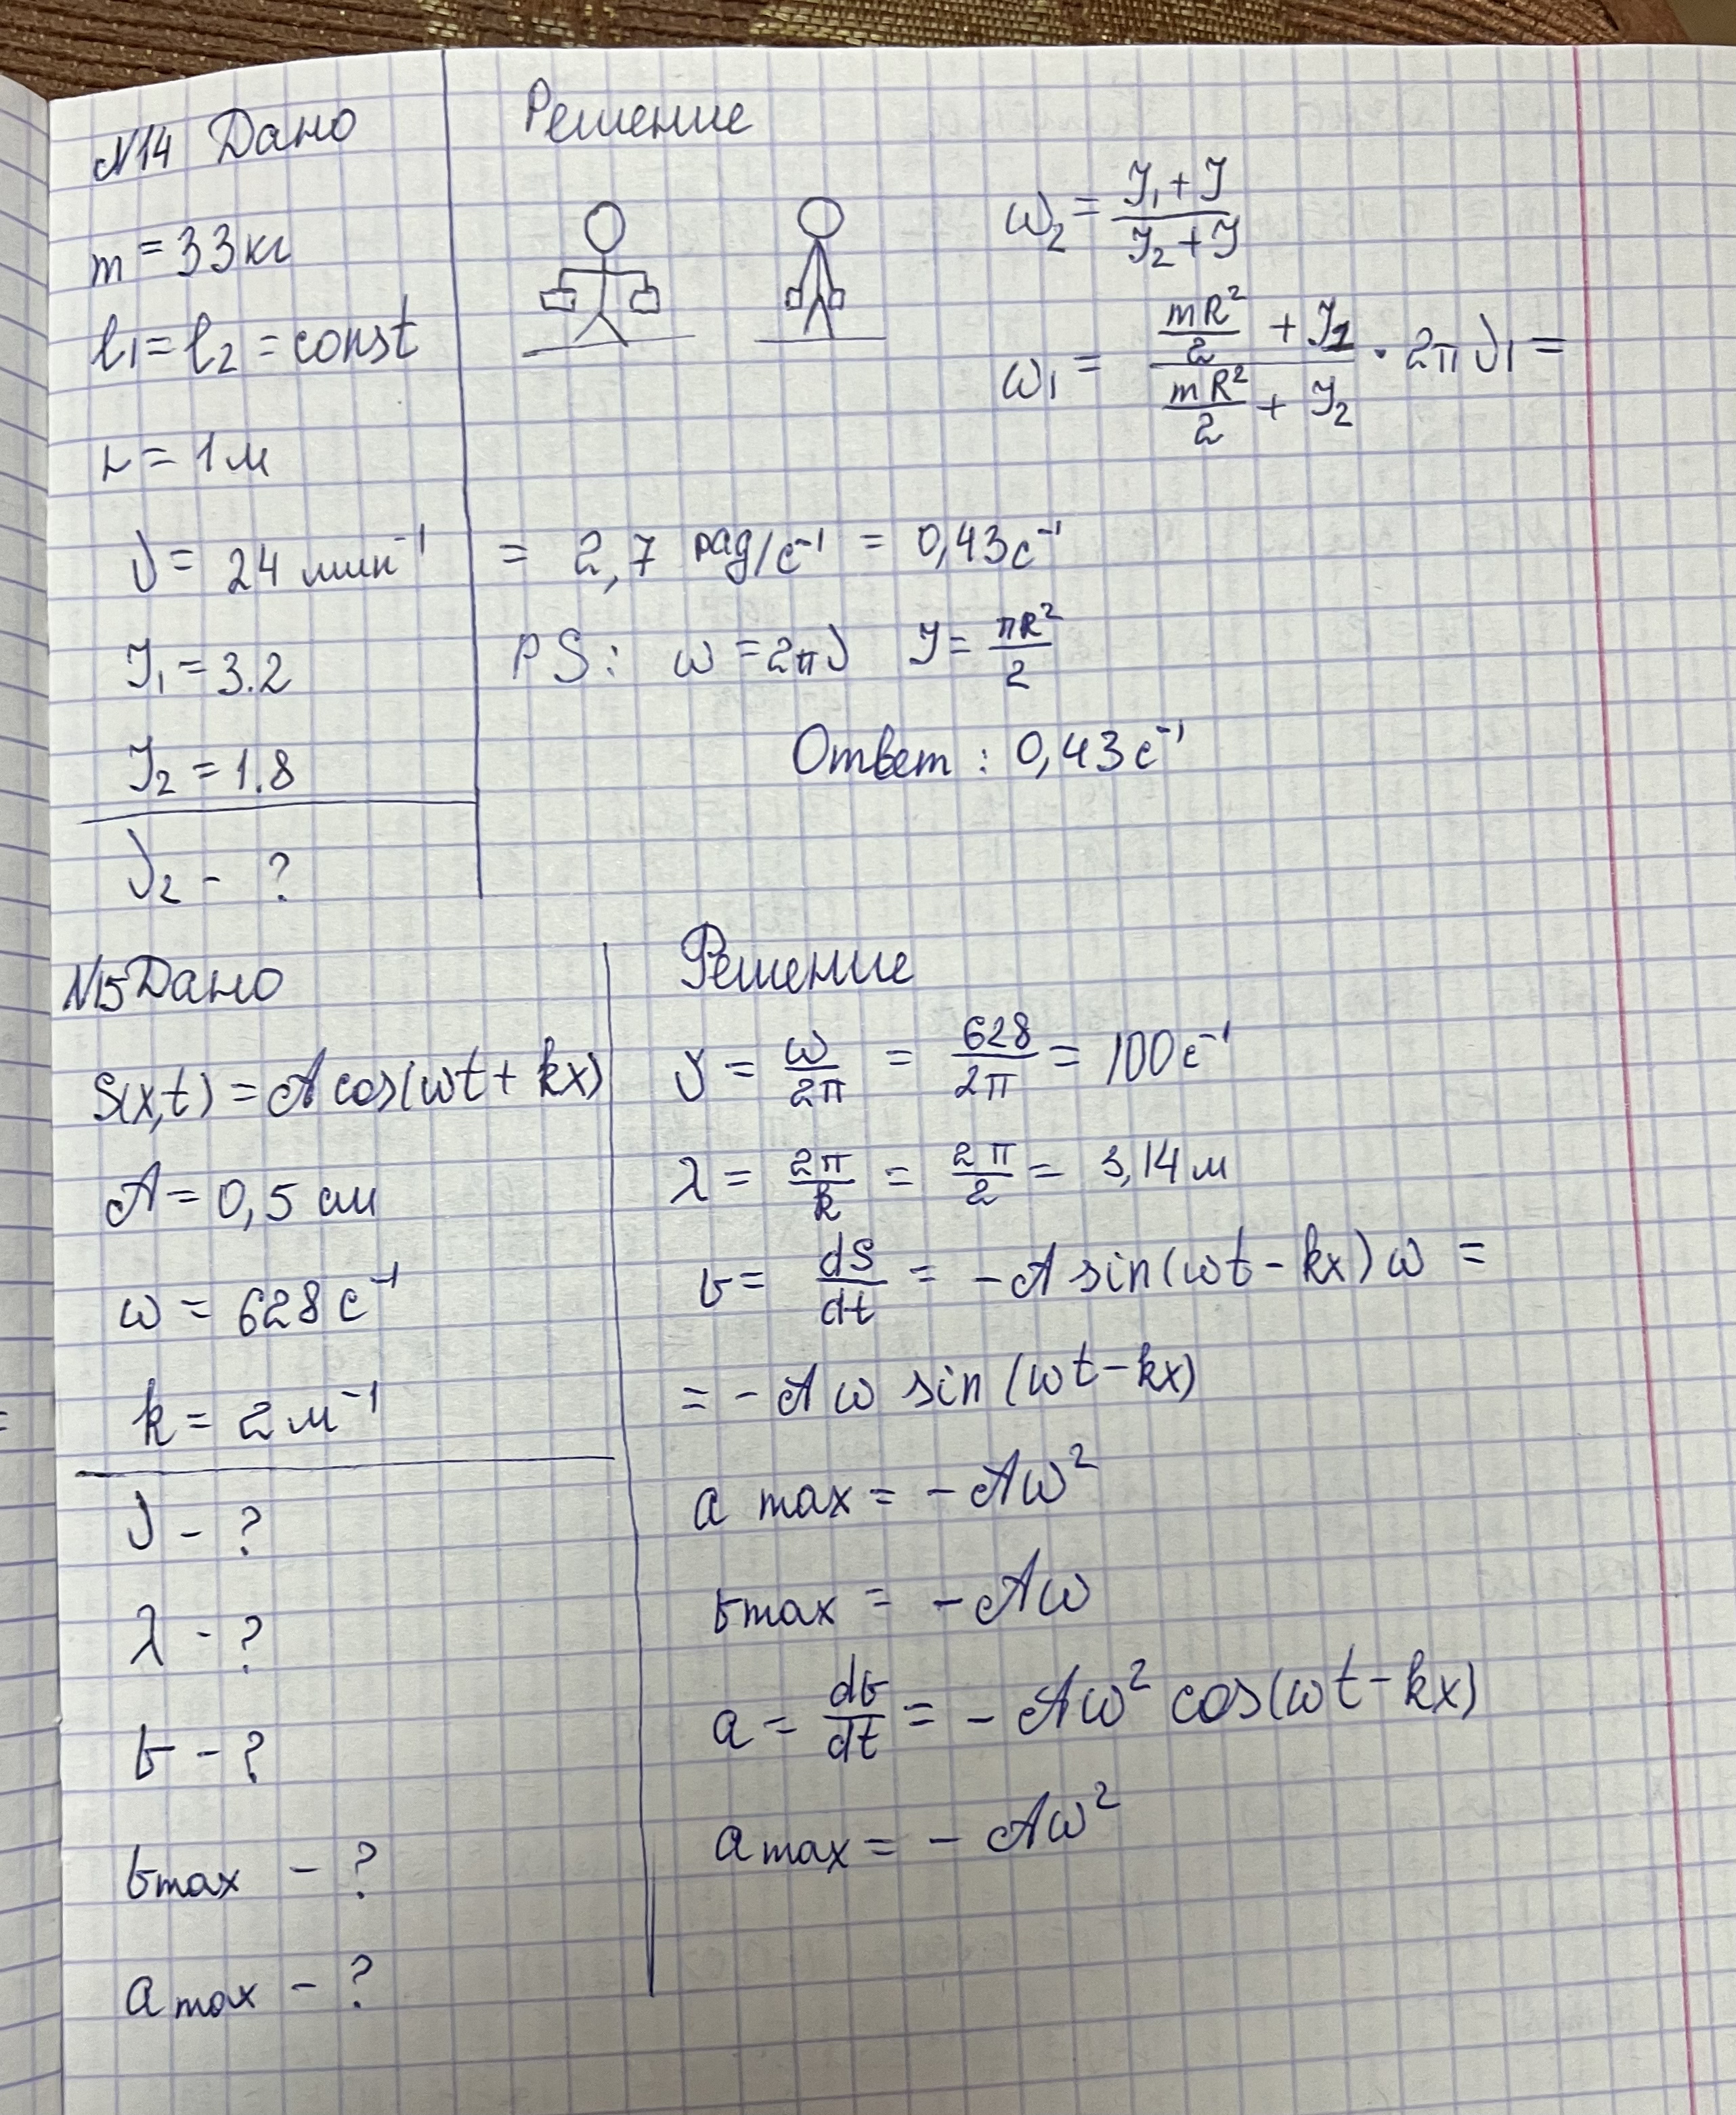 N14 Дано
m = 33 кг
l₁ = l₂ = const
r = 1 м
ν = 24 мин⁻¹
J₁ = 3.2
J₂ = 1.8
ν₂ - ?
Решение
ω₂ = (J₁ + J) / (J₂ + J)
ω₁ = (mR²/2 + J₁) / (mR²/2 + J₂) · 2πν₁ =
= 2,7 рад/с⁻¹ = 0,43 с⁻¹
PS: ω = 2πν J = πR²/2
Ответ: 0,43 с⁻¹
N15 Дано
S(x,t) = A cos(ωt + kx)
A = 0,5 см
ω = 628 с⁻¹
k = 2 м⁻¹
ν - ?
λ - ?
v - ?
vmax - ?
amax - ?
Решение
ν = ω/2π = 628/2π = 100 с⁻¹
λ = 2π/k = 2π/2 = 3,14 м
v = dS/dt = -A sin(ωt - kx) ω =
= - A ω sin (ωt - kx)
a max = - Aω²
vmax = - Aω
a = dv/dt = - Aω² cos(ωt - kx)
amax = - Aω²